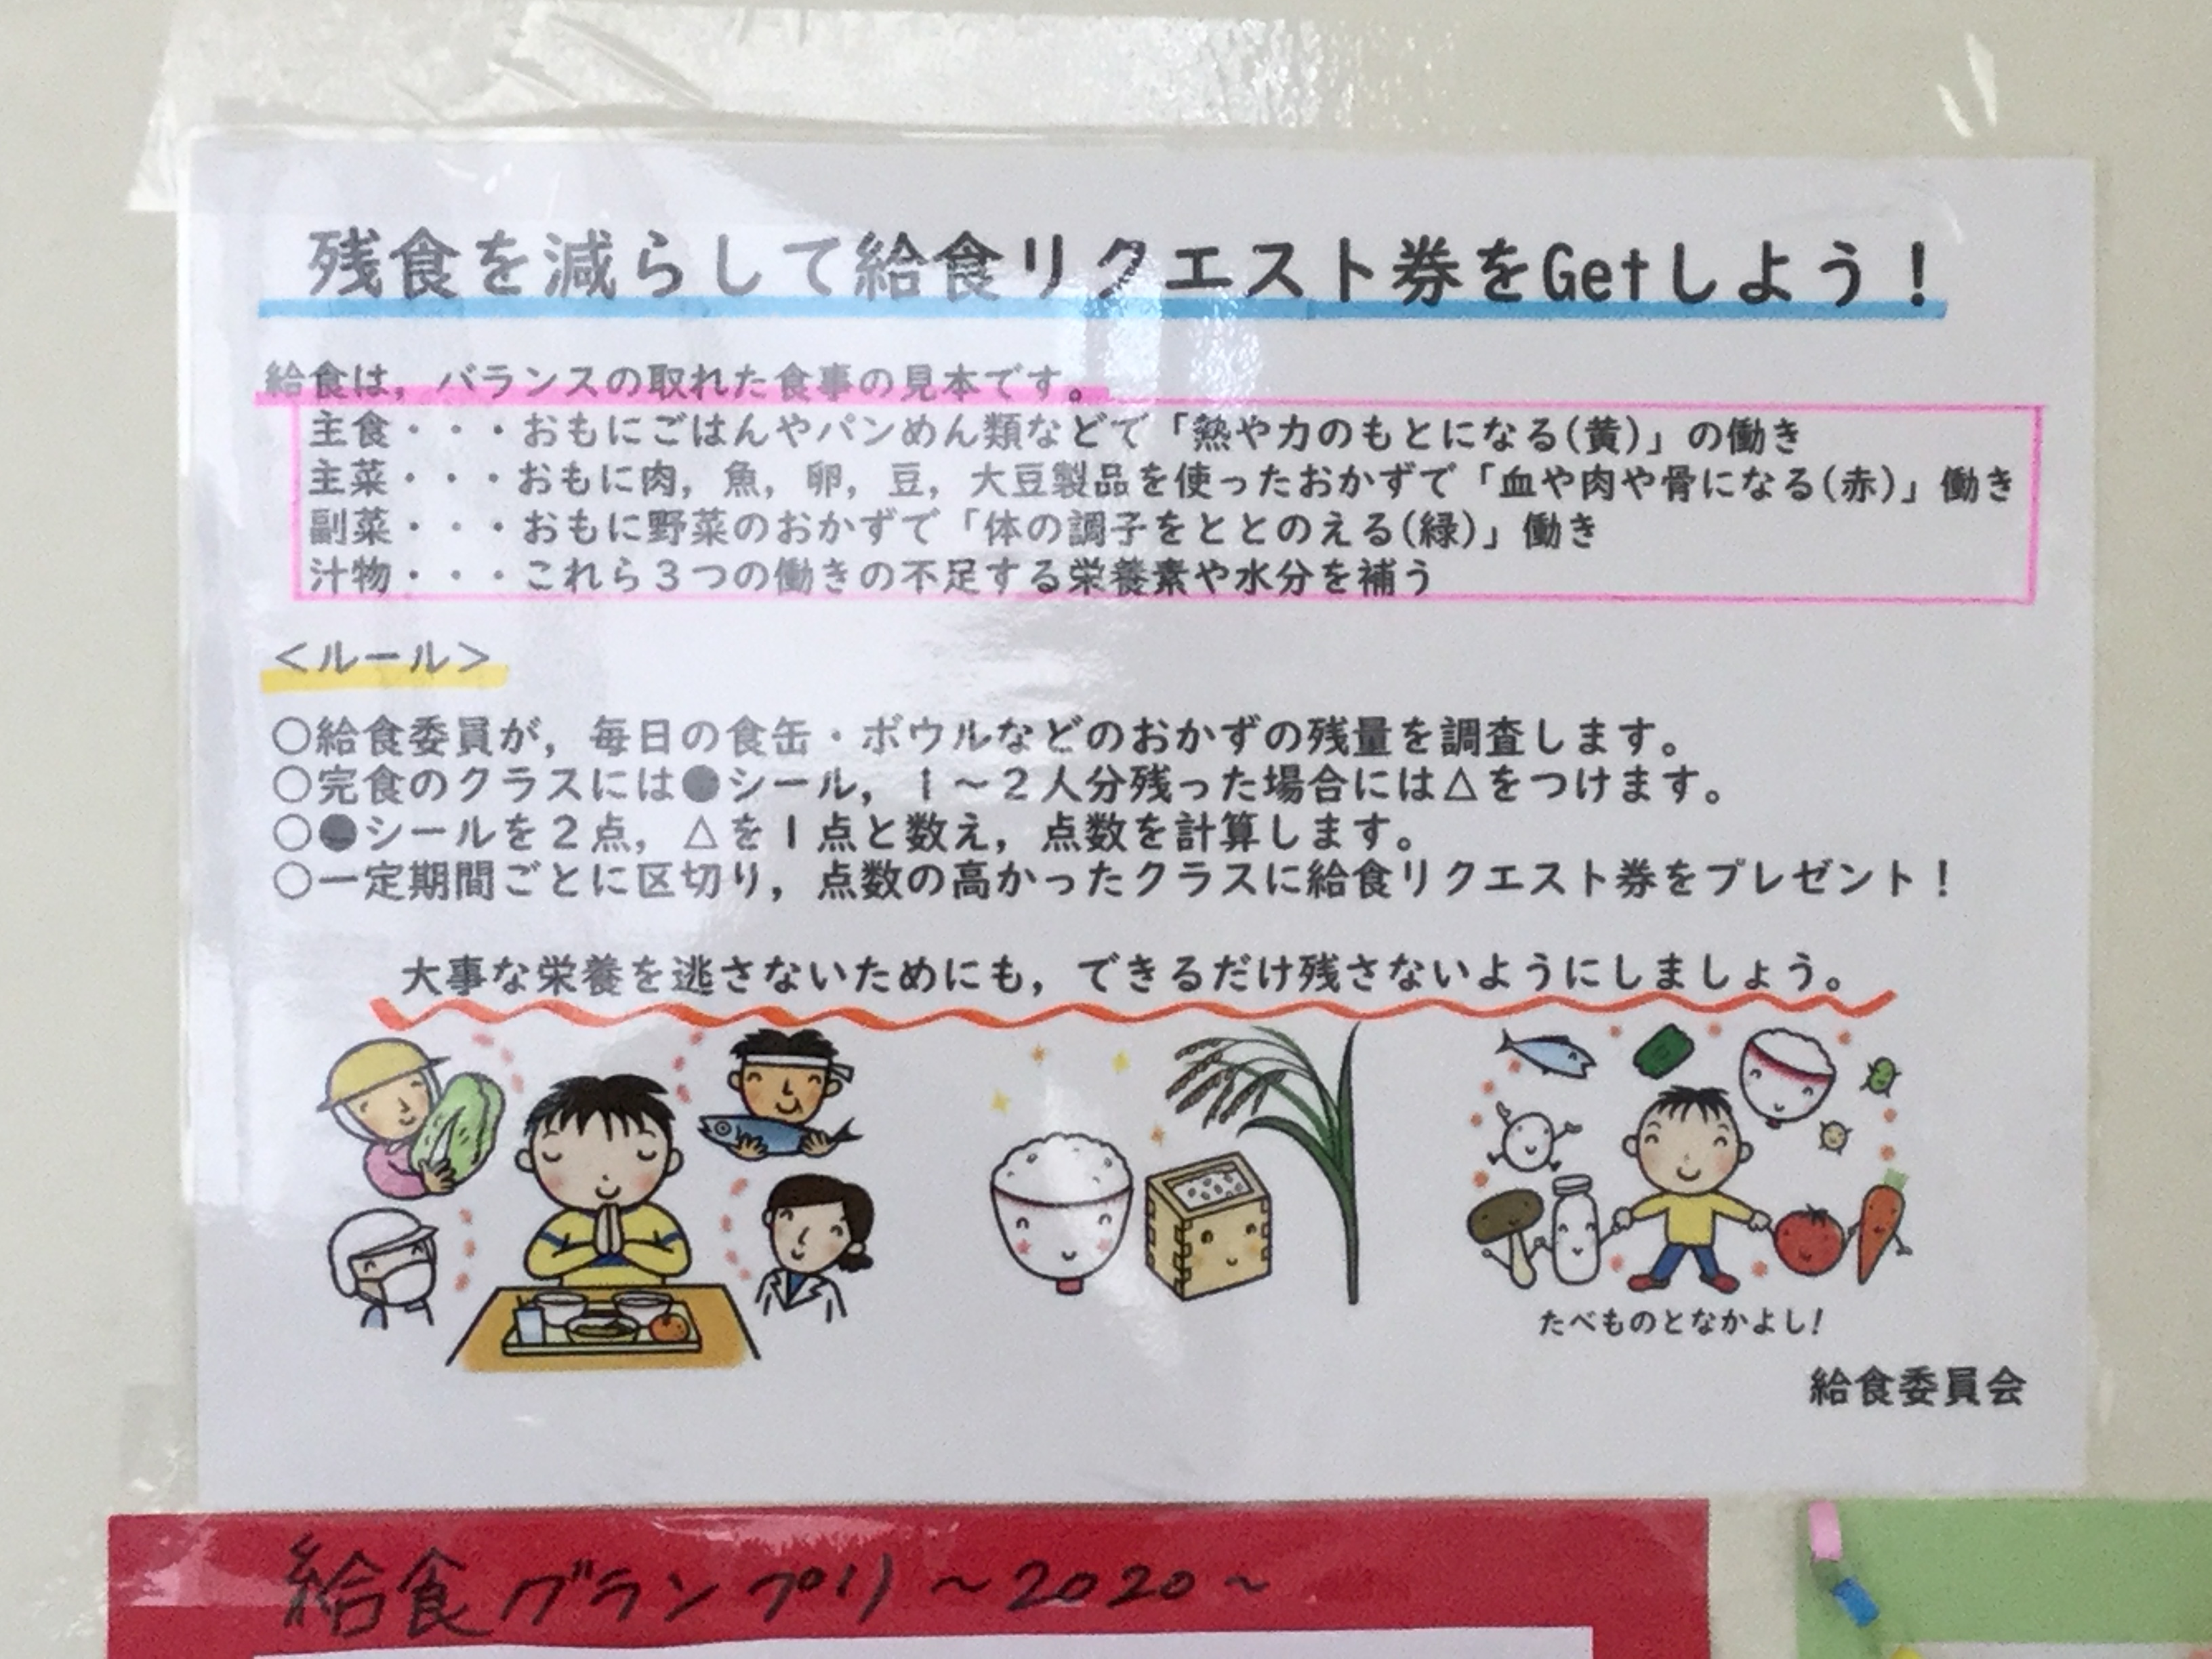 残食を減らして給食リクエスト券をGetしよう！
給食は，バランスの取れた食事の見本です。
主食・・・おもにごはんやパンめん類などで「熱や力のもとになる(黄)」の働き
主菜・・・おもに肉，魚，卵，豆，大豆製品を使ったおかずで「血や肉や骨になる(赤)」働き
副菜・・・おもに野菜のおかずで「体の調子をととのえる(緑)」働き
汁物・・・これら３つの働きの不足する栄養素や水分を補う
＜ルール＞
○給食委員が，毎日の食缶・ボウルなどのおかずの残量を調査します。
○完食のクラスには●シール，１～２人分残った場合には△をつけます。
○●シールを２点，△を１点と数え，点数を計算します。
○一定期間ごとに区切り，点数の高かったクラスに給食リクエスト券をプレゼント！
大事な栄養を逃さないためにも，できるだけ残さないようにしましょう。
たべものとなかよし！
給食委員会
給食グランプリ～2020～